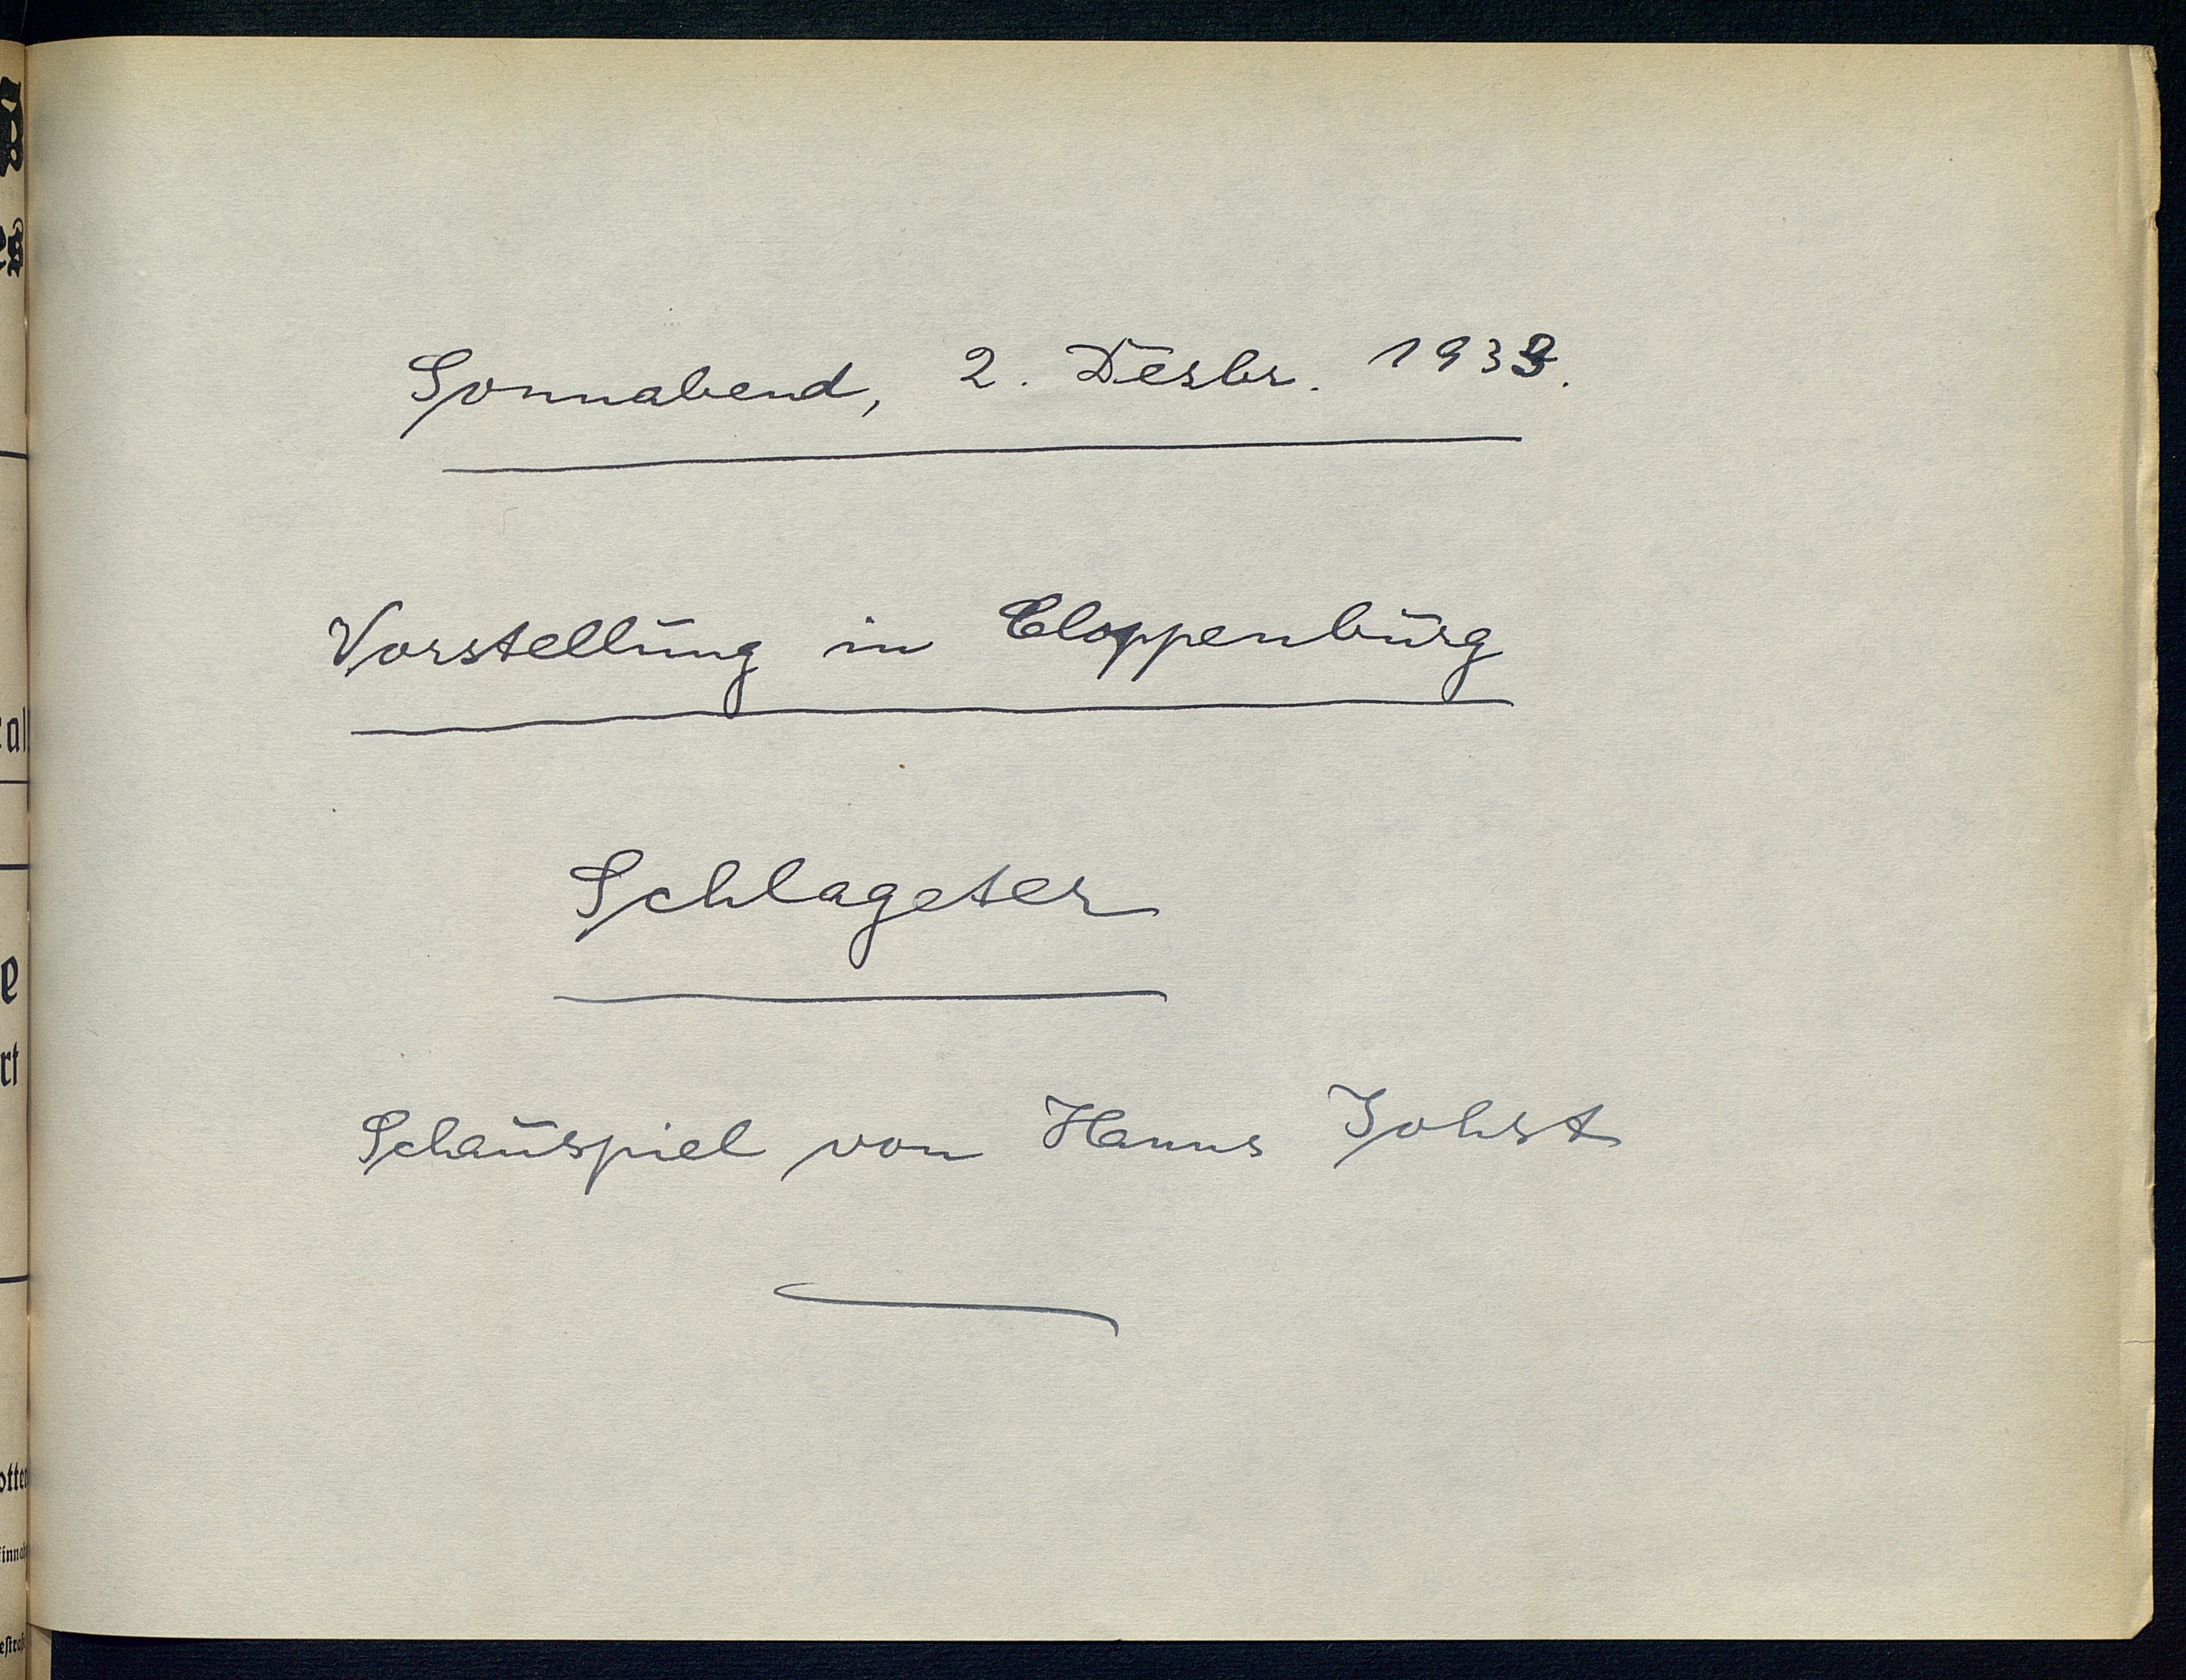 Sonnabend, 2. Dezbr. 1933.
Vorstellung in Cloppenburg
Schlageter
Schauspiel von Hanns Johst